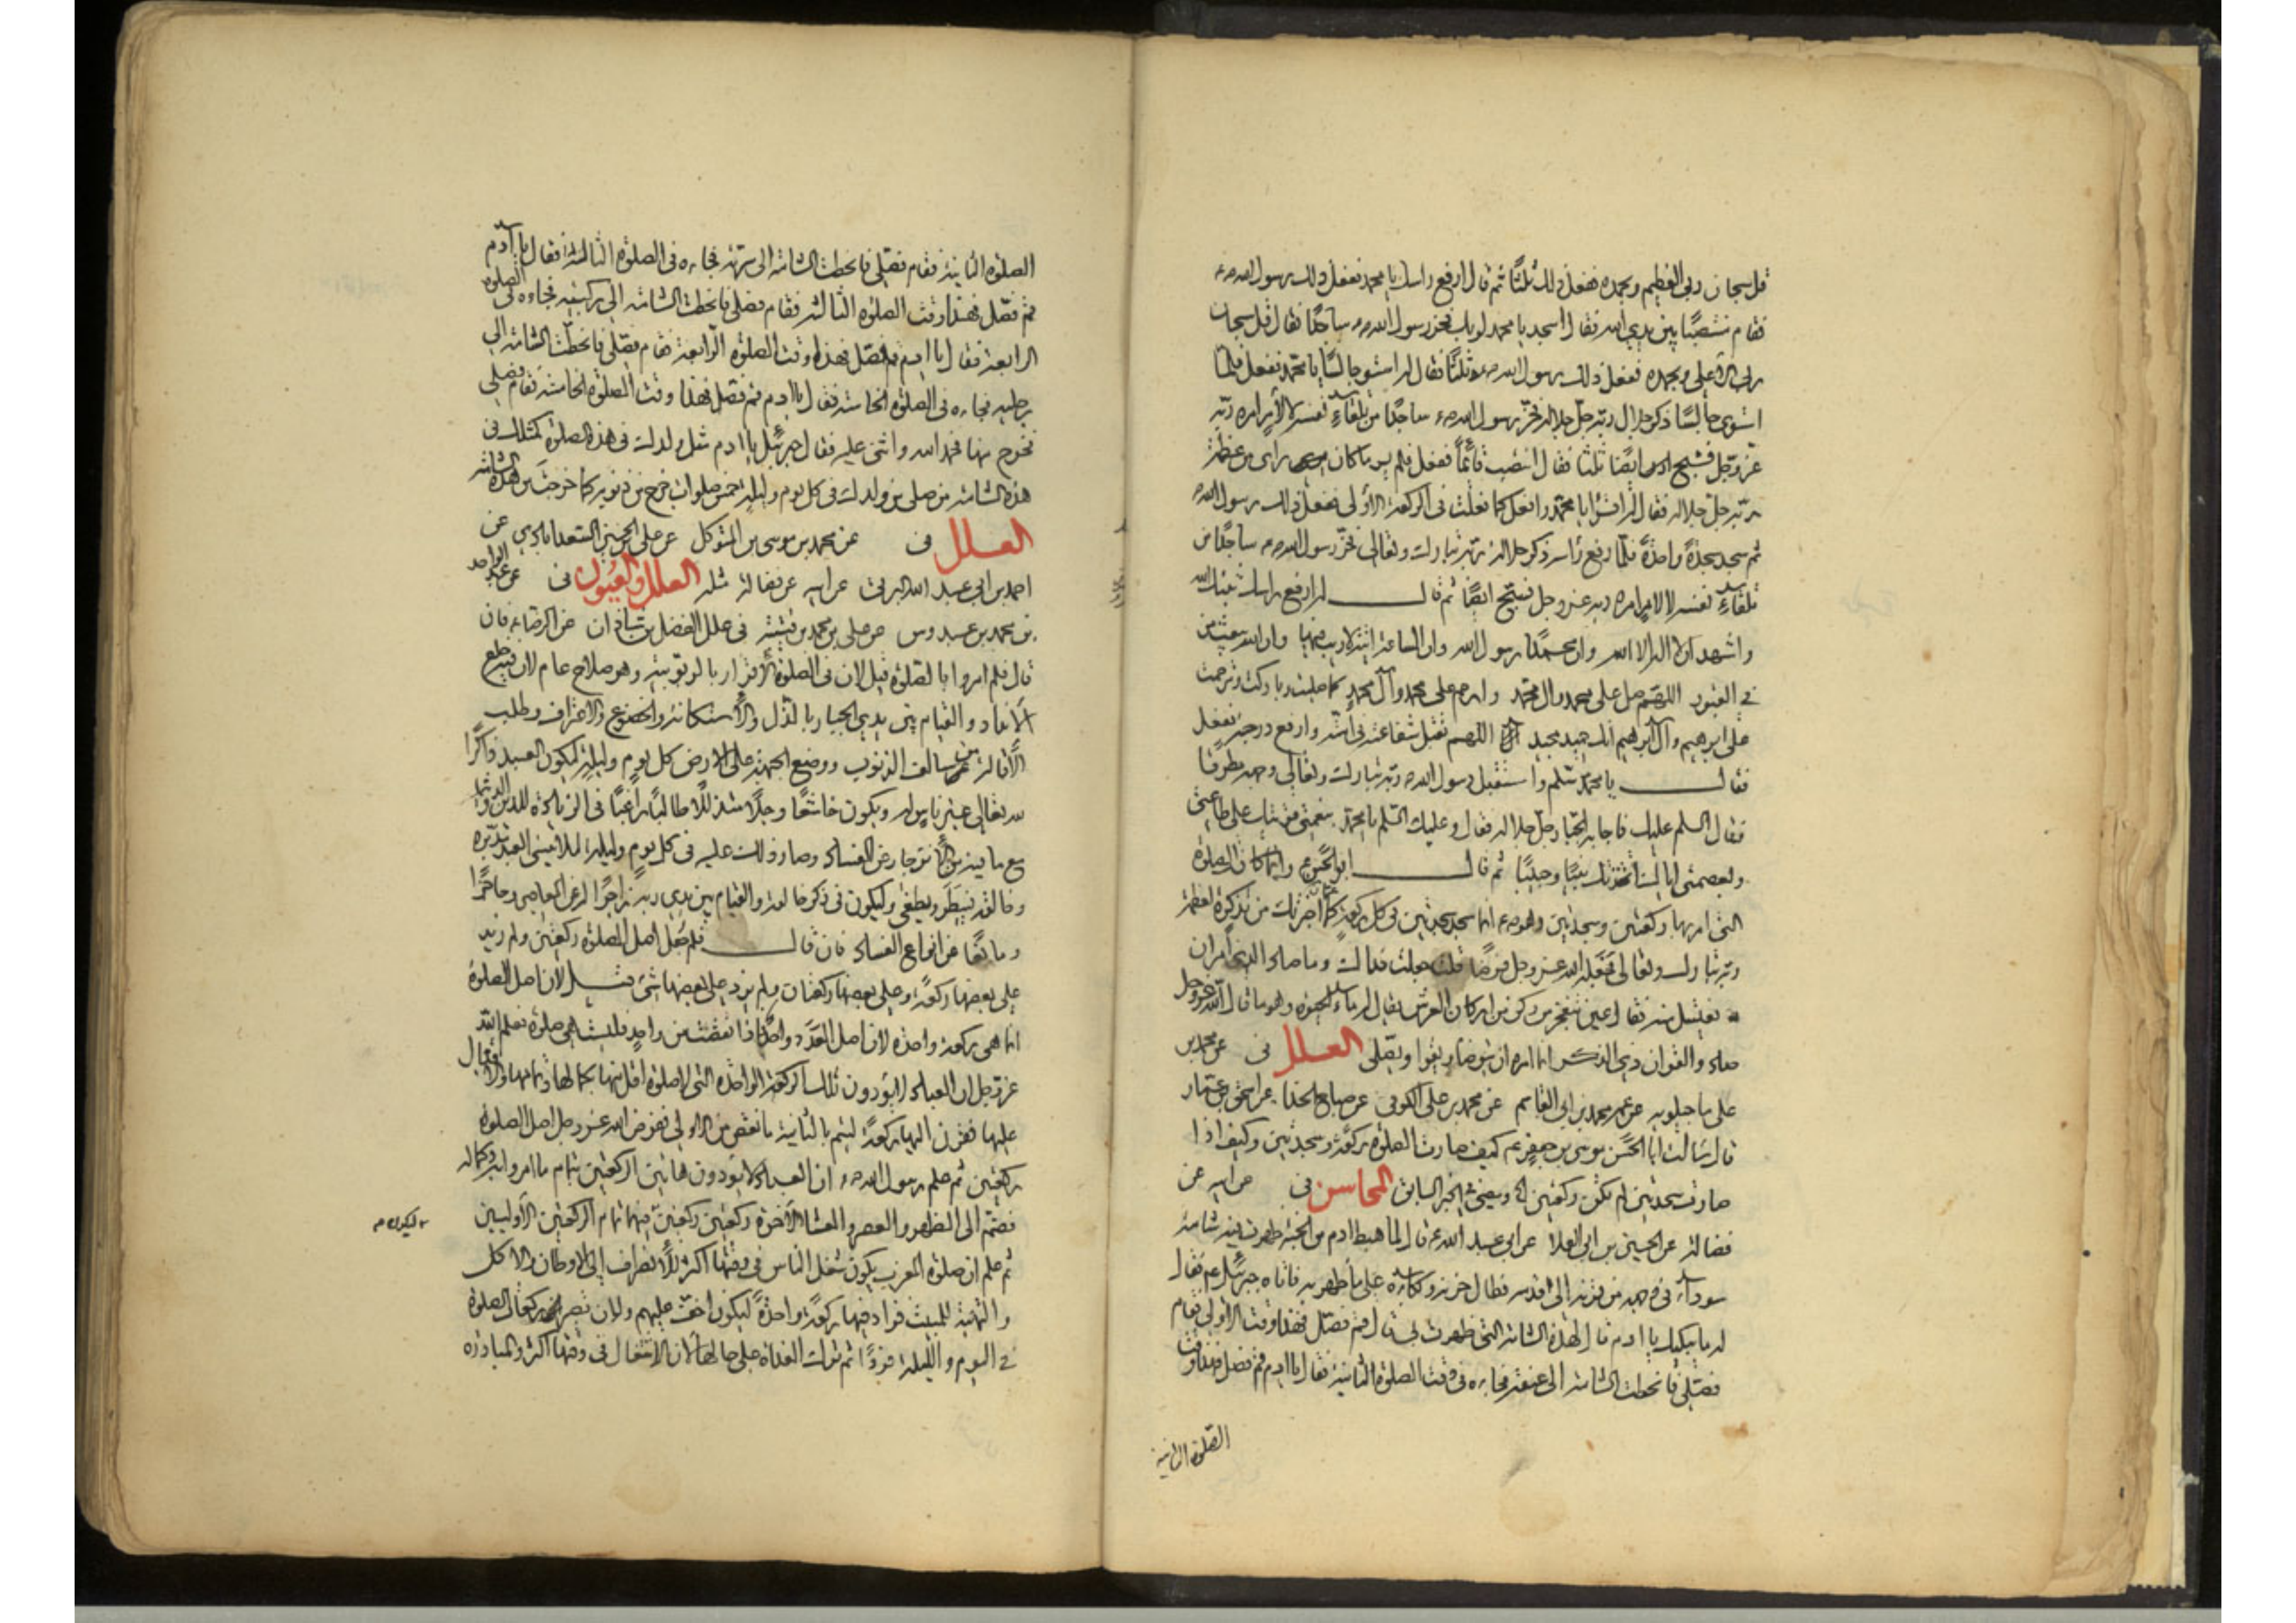 قل سبحان ربي العظيم وبحمده ففعل ذلك ثلثا ثم قال ارفع راسك يا محمد ففعل ذلك رسول الله ص
فقام منتصبا بين يدي الله فقال اسجد يا محمد لربك فخر رسول الله ص ساجدا فقال قل سبحان
ربي الاعلى وبحمده ففعل ذلك رسول الله ص ثلثا فقال له استو جالسا يا محمد ففعل فلما
استوى جالسا ذكر جلال ربه جل جلاله فخر رسول الله ص ساجدا من تلقاء نفسه لا لامر امره ربه
عز وجل فسبح ايضا ثلثا فقال انتصب قائما ففعل فلم ير ما كان راى من عظمة
ربه جل جلاله فقال له اقرا يا محمد وافعل كما فعلت في الركعة الاولى ففعل ذلك رسول الله ص
ثم سجد سجدة واحدة فلما رفع راسه ذكر جلالة ربه تبارك وتعالى فخر رسول الله ص ساجدا من
تلقاء نفسه لا لامر امره ربه عز وجل فسبح ايضا ثم قال له ارفع راسك ثبتك الله
واشهد ان لا اله الا الله وان محمدا رسول الله وان الساعة اتية لا ريب فيها وان الله يبعث من
في القبور اللهم صل على محمد وال محمد وارحم على محمد وآل محمد كما صليت وباركت وترحمت
على ابرهيم وآل ابرهيم انك حميد مجيد اللهم تقبل شفاعته في امته وارفع درجته ففعل
فقال يا محمد سلم واستقبل رسول الله ص ربه تبارك وتعالى وجهه مطرقا
فقال السلم عليك فاجابه الجبار جل جلاله فقال وعليك السلم يا محمد بنعمتي قويتك على طاعتي
وبعصمتي اياك اتخذتك نبيا وحبيبا ثم قال ابو الحسن ع وانما كانت الصلوة
التي امر بها ركعتين وسجدتين وهو ص انما سجد سجدتين في كل ركعة كما اخبرتك من تذكره لعظمة
ربه تبارك وتعالى فجعله الله عز وجل فرضا قلت جعلت فداك وما صاد الذي امر ان
يغتسل منه فقال عين تنفجر من ركن من اركان العرش يقال له ماء الحيوة وهو ما قال الله عز وجل
صاد والقران ذي الذكر انما امره ان يتوضا ويقرا ويصلى العلل في عن محمد بن
على ماجيلويه عن عمه محمد بن ابي القاسم عن محمد بن على الكوفي عن صباح الحذا عن اسحق بن عمار
قال سالت ابا الحسن موسى بن جعفر ع كيف صارت الصلوة ركعة وسجدتين وكيف اذا
صارت سجدتين لم تكن ركعتين الخ وسيجئ في الخبر السابق المحاسن في عن ابيه عن
فضالة عن الحسين بن ابي العلا عن ابي عبد الله ع قال لما هبط ادم من الجنة ظهرت به شامة
سوداء في وجهه من قرنه الى قدمه فطال حزنه وبكاؤه على ما ظهر به فاتاه جبرئيل ع فقال
له ما يبكيك يا ادم قال لهذه الشامة التي ظهرت بي قال قم فصل فهذا وقت الاولى فقام
فصلى فانحطت الشامة الى عنقه فجاءه في وقت الصلوة الثانية فقال يا ادم قم فصل فهذا وقت
الصلوة الثانية
الصلوة الثانية فقام فصلى فانحطت الشامة الى سرته فجاءه في الصلوة الثالثة فقال يا آدم
قم فصل فهذا وقت الصلوة الثالثة فقام فصلى فانحطت الشامة الى ركبتيه فجاءه في الصلوة
الرابعة فقال يا ادم قم فصل فهذا وقت الصلوة الرابعة فقام فصلى فانحطت الشامة الى
رجليه فجاءه في الصلوة الخامسة فقال يا ادم قم فصل فهذا وقت الصلوة الخامسة فقام فصلى
فخرج منها فحمد الله واثنى عليه فقال جبرئيل يا ادم مثل ولدك في هذه الصلوة كمثلك في
هذه الشامة من صلى من ولدك في كل يوم وليلة خمس صلوات خرج من ذنوبه كما خرجت من هذه الشامة
العلل في عن محمد بن موسى بن المتوكل عن على بن الحسين السعدابادي عن
احمد بن ابي عبد الله البرقي عن ابيه عن فضالة مثله العلل والعيون في عن عبد الواحد
بن محمد بن عبدوس عن على بن محمد بن قتيبة في علل الفضل بن شاذان عن الرضا ع فان
قال فلم امروا بالصلوة قيل لان في الصلوة الاقرار بالربوبية وهو صلاح عام لان فيه خلع
الانداد والقيام بين يدي الجبار بالذل والاستكانة والخضوع والاعتراف وطلب
الاقالة من سالف الذنوب ووضع الجبهة على الارض كل يوم وليلة ليكون العبد ذاكرا
لله تعالى غير ناس له ويكون خاشعا وجلا متذللا طالبا راغبا في الزيادة للدين والدنيا
مع ما فيه من الانزجار عن الفساد وصار ذلك عليه في كل يوم وليلة لئلا ينسى العبد مدبره
وخالقه فيبطر ويطغى وليكون في ذكر خالقه والقيام بين يدي ربه زاجرا له عن المعاصي وحاجزا
ومانعا عن انواع الفساد فان قال فلم جعل اصل الصلوة ركعتين ولم زيد
على بعضها ركعة وعلى بعضها ركعتان ولم يزد على بعضها شئ قيل لان اصل الصلوة
انما هي ركعة واحدة لان اصل العدد واحد فاذا نقصت من واحد فليست هي صلوة فعلم الله
عز وجل ان العباد لا يؤدون تلك الركعة الواحدة التي لا صلوة اقل منها بكمالها وتمامها والاقبال
عليها فقرن اليها ركعة ليتم بالثانية ما نقص من الاولى ففرض الله عز وجل اصل الصلوة
ركعتين ثم علم رسول الله ص ان العباد لا يؤدون هاتين الركعتين بتمام ما امروا به وكماله
فضم الى الظهر والعصر والعشاء الاخرة ركعتين ركعتين فيهما تمام الركعتين الاوليين
ليكون م
ثم علم ان صلوة المغرب يكون شغل الناس في وقتها اكثر للانصراف الى الاوطان والاكل
والتهيئة للمبيت فزاد فيها ركعة واحدة ليكون اخف عليهم ولان تصير ركعات الصلوة
في اليوم والليلة فردا ثم ترك الغداة على حالها لان الاشتغال في وقتها اكثر والمبادرة